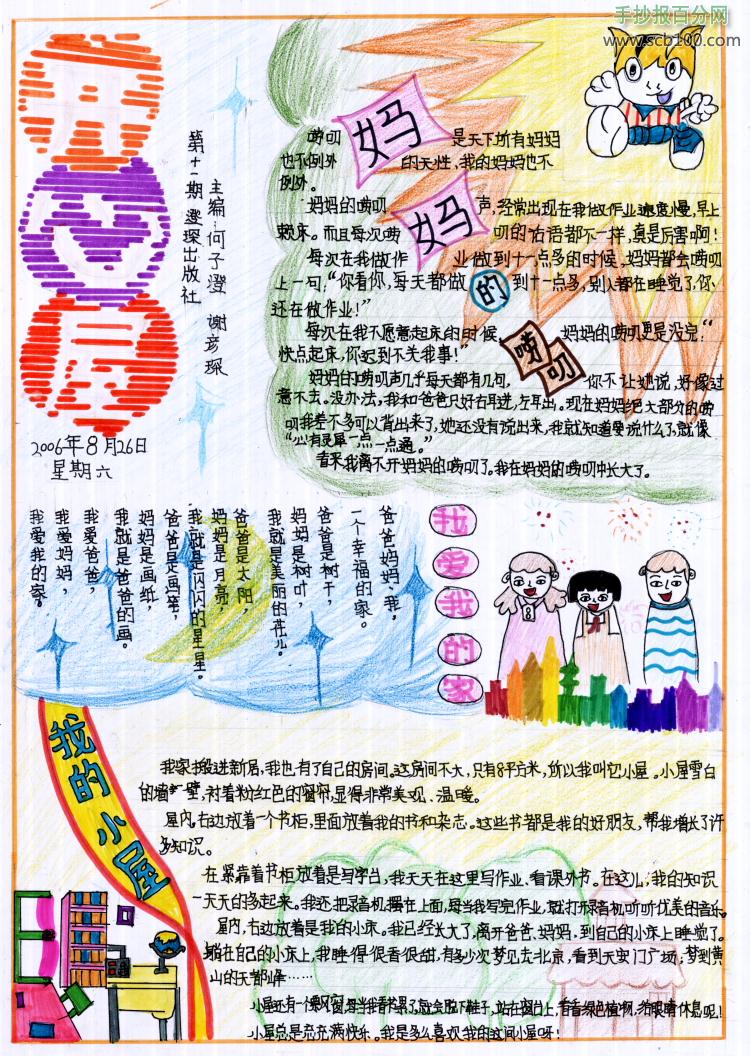 手抄报百分网
www.scb100.com
开心屋
第十一期 澄琛出版社
主编:何子澄 谢彦琛
2006年8月26日
星期六
妈妈的唠叨
唠叨是天下所有妈妈
的天性,我的妈妈也不
例外。
妈妈的唠叨声,经常出现在我做作业速度慢,早上
赖床。而且每次唠叨的话语都不一样,真是厉害啊!
每次在我做作业做到十一点多的时候,妈妈都会唠叨
上一句:“你看你,每天都做到十一点多,别人都在睡觉了,你
还在做作业!”
每次在我不愿意起床的时候,妈妈的唠叨更是没完:“
快点起床,你迟到不关我事!”
妈妈的唠叨声几乎每天都有几句,你不让她说,好像过
意不去。没办法,我和爸爸只好右耳进,左耳出。现在妈妈把大部分的唠
叨我差不多可以背出来了,她还没有说出来,我就知道要说什么了,就像
“心有灵犀一点一点通。”
看来我离不开妈妈的唠叨了。我在妈妈的唠叨中长大了。
我爱我的家
爸爸妈妈、我,
一个幸福的家。
爸爸是树干,
妈妈是树叶,
我就是美丽的花儿。
爸爸是太阳,
妈妈是月亮,
我就是闪闪的星星。
爸爸是画笔,
妈妈是画纸,
我就是爸爸的画。
我爱爸爸,
我爱妈妈,
我爱我的家。
我的小屋
我家搬进新居,我也有了自己的房间。这房间不大,只有8平方米,所以我叫它小屋。小屋雪白
的墙壁,衬着粉红色的窗帘,显得非常美观、温暖。
屋内,右边放着一个书柜,里面放着我的书和杂志。这些书都是我的好朋友,帮我增长了许
多知识。
在紧靠着书柜放着是写字台,我天天在这里写作业、看课外书。在这儿,我的知识
一天天的多起来。我还把录音机摆在上面,每当我写完作业,就打开录音机听听优美的音乐。
屋内,右边放着是我的小床。我已经长大了,离开爸爸、妈妈,到自己的小床上睡觉了。
躺在自己的小床上,我睡得很香很甜,有多少次梦见去北京,看到天安门广场;梦到黄
山的天都峰……
小屋还有一个飘窗,每当我看书累了,就会脱下鞋子,站在窗台上,看看绿色植物,给眼睛休息呢!
小屋总是充充满快乐。我是多么喜欢我的这间小屋呀!